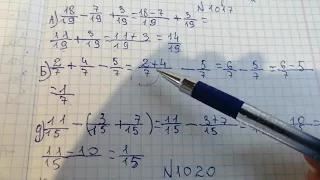 N1017
A) 18/19 - 7/19 + 3/19 = 18-7/19 + 3/19 =
11/19 + 3/19 = 11+3/19 = 14/19
Б) 2/7 + 4/7 - 5/7 = 2+4/7 - 5/7 = 6/7 - 5/7 = 6-5/7
= 1/7
д) 11/15 - (3/15 + 7/15) = 11/15 - 3+7/15 =
11-10/15 = 1/15
N1020